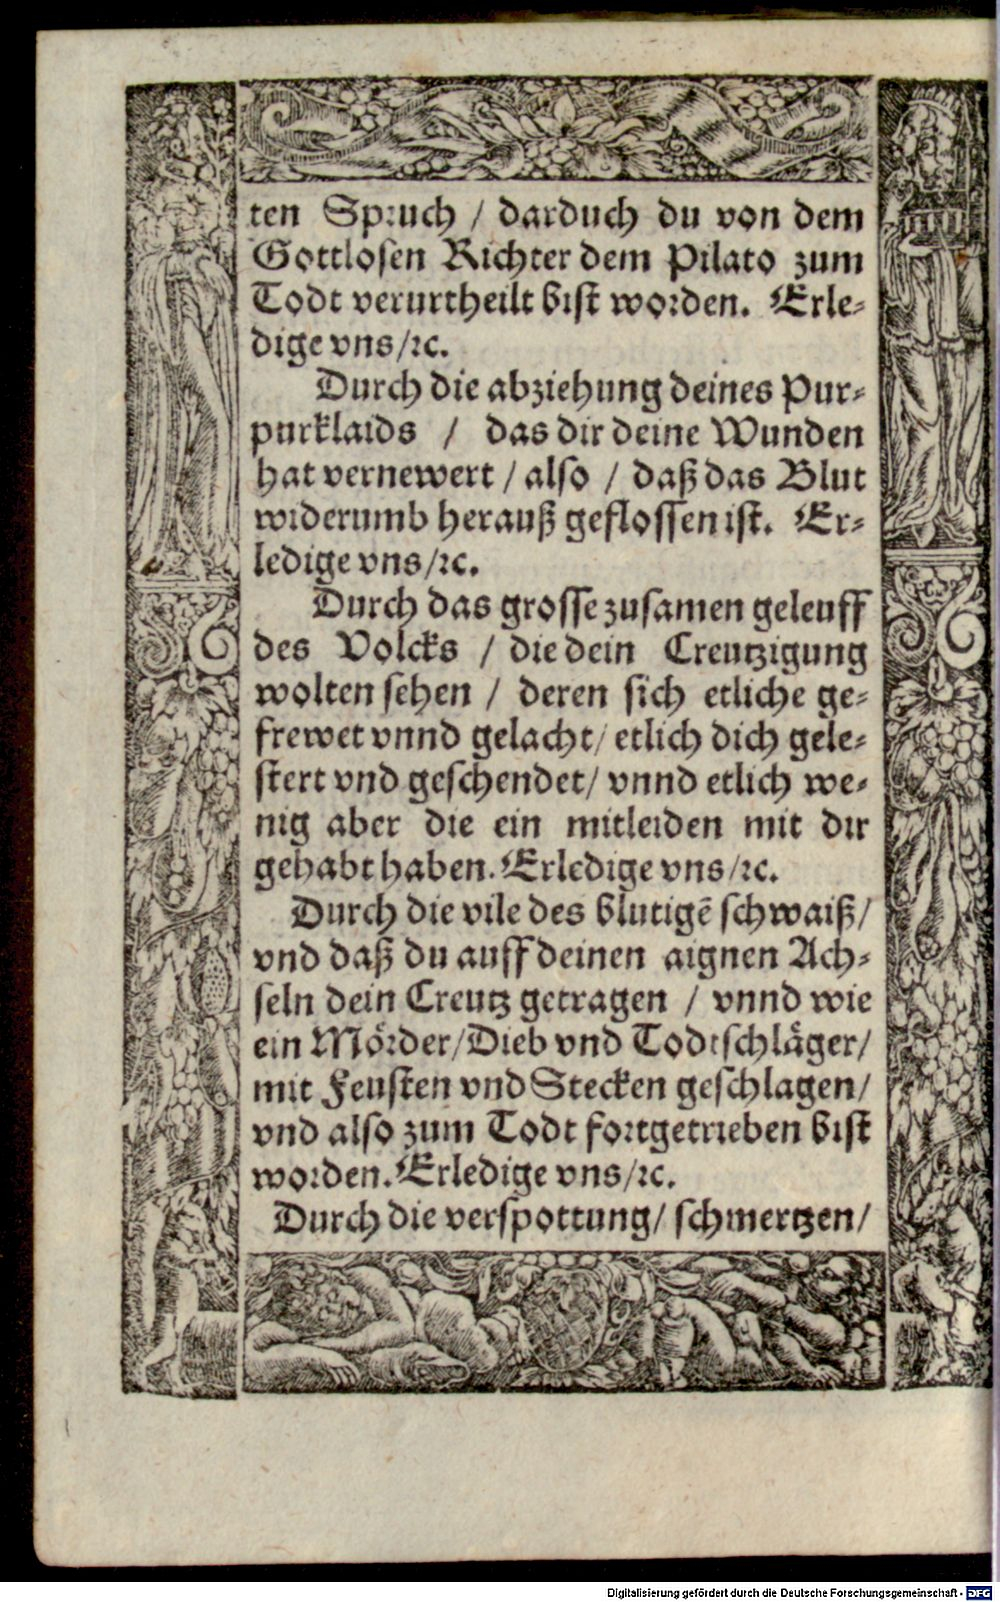 ten Spruch / darduch du von dem
Gottlosen Richter dem Pilato zum
Todt verurtheilt bist worden. Erle-
dige vns/ꝛc.
Durch die abziehung deines Pur-
purklaids / das dir deine Wunden
hat vernewert / also / daß das Blut
widerumb herauß geflossen ist. Er-
ledige vns/ꝛc.
Durch das grosse zusamen geleuff
des Volcks / die dein Creutzigung
wolten sehen / deren sich etliche ge-
frewet vnnd gelacht/ etlich dich gele-
stert vnd geschendet/ vnnd etlich we-
nig aber die ein mitleiden mit dir
gehabt haben. Erledige vns/ꝛc.
Durch die vile des blutigẽ schwaiß/
vnd daß du auff deinen aignen Ach-
seln dein Creutz getragen / vnnd wie
ein Mörder/Dieb vnd Todtschläger/
mit Feusten vnd Stecken geschlagen/
vnd also zum Todt fortgetrieben bist
worden. Erledige vns/ꝛc.
Durch die verspottung/ schmertzen/
Digitalisierung gefördert durch die Deutsche Forschungsgemeinschaft - DFG